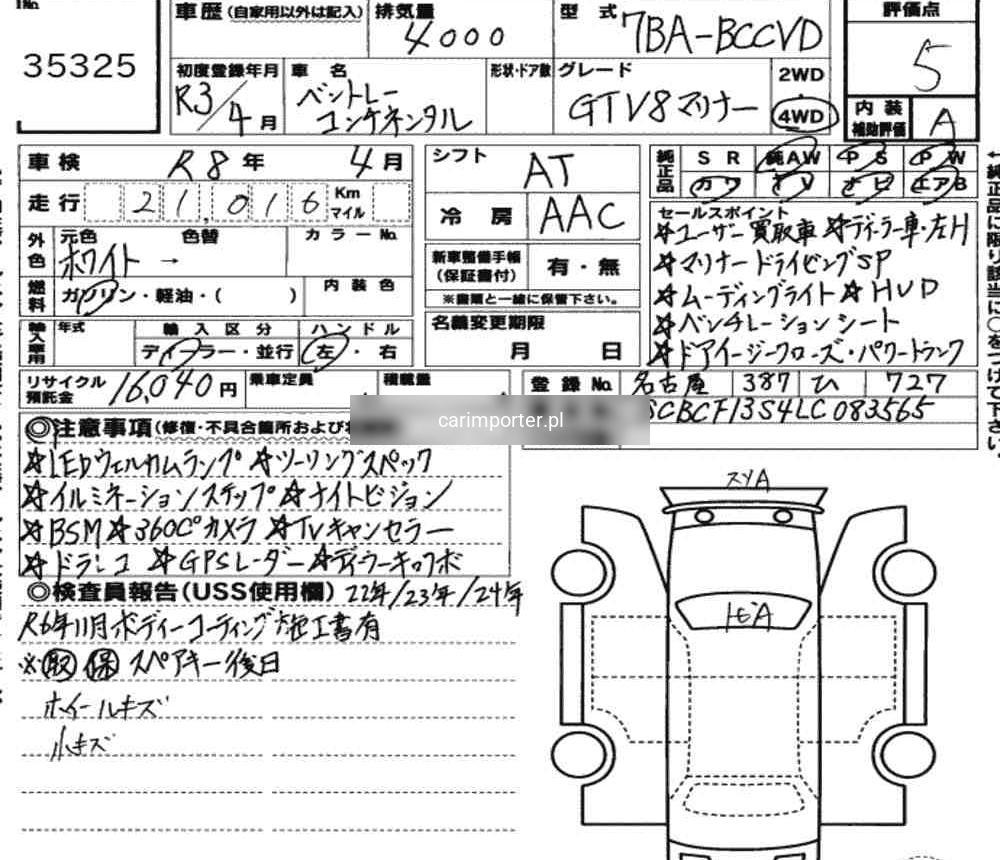 No.
35325
車歴 (自家用以外は記入)
排気量
4000
型式
7BA-BCCVD
評価点
5
初度登録年月
R3/4月
車名
ベントレー
コンチネンタル
形状・ドア数
グレード
GTV8マリナー
2WD
4WD
内装
補助評価
A
車検
R8年 4月
走行
21,016
Km
マイル
シフト
AT
冷房
AAC
純正品
SR 純AW PS PW
カワ TV ナビ エアB
外色
元色
色替
カラーNo.
ホワイト →
燃料
ガソリン・軽油・( )
内装色
新車整備手帳
(保証書付)
有・無
※書類と一緒に保管下さい。
セールスポイント
☆ユーザー買取車 ☆ディーラー車・左H
☆マリナードライビングSP
☆ムーディングライト☆HUD
☆ベンチレーションシート
☆ドアイージークローズ・パワートランク
輸入車用
年式
輸入区分
ハンドル
ディーラー・並行
左・右
名義変更期限
月 日
リサイクル
預託金
16,040円
乗車定員
積載量
登録No.
名古屋 387 ひ 727
SCBCF13S4LC083565
carimporter.pl
◎注意事項(修復・不具合箇所および
☆LEDウェルカムランプ ☆ツーリングスペック
☆イルミネーションステップ☆ナイトビジョン
☆BSM☆360C°カメラ ☆TVキャンセラー
☆ドラレコ ☆GPSレーダー☆ディーラーキロクボ
◎検査員報告(USS使用欄) 22年/23年/24年
R6年11月ボディーコーティング施工書有
※取 保 スペアキー後日
ホイールキズ
小キズ
スリA
トビA
←純正品に限り該当に○をつけて下さい。